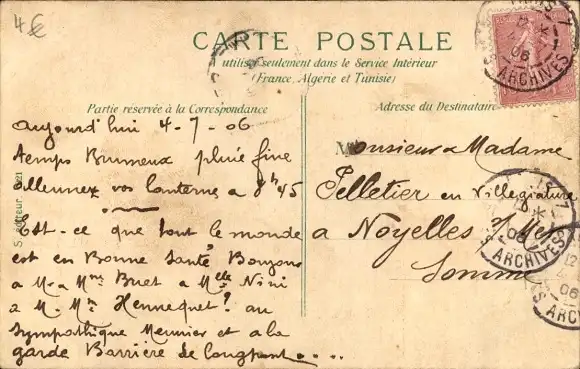 4€
CARTE POSTALE
utilisé seulement dans le Service Intérieur
(France, Algérie et Tunisie)
Partie réservée à la Correspondance
Adresse du Destinataire
aujourd'hui 4-7-06
temps Brumeux pluie fine
allumez vos lanternes a 8h45
Est-ce que tout le monde
est en Bonne Santé Bonjour
a Mr a Mme Buet a Melle Nini
a M. Me Hennequet? au
Sympathique Meunier et a la
garde Barrière de
Monsieur & Madame
Pelletier en Villegiature
a Noyelles s/Mer
Somme
PARIS 7
06
ARCHIVES
ARCHIVES
06
ARCHIVES
12
06
ARCH